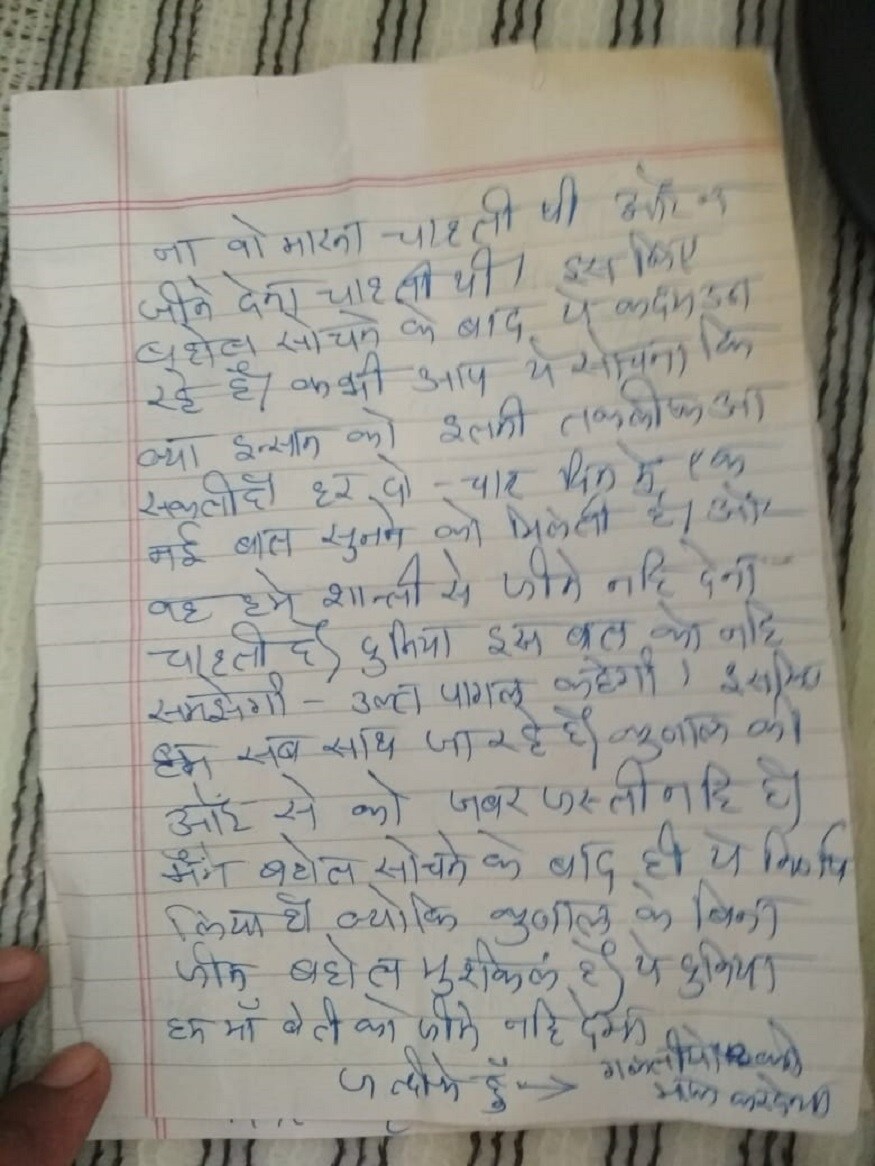 ना वो मारना चाहती थी और न
जीने देना चाहती थी। इस लिए
बहोत सोचने के बाद ये कदम उठा
रहे है। कभी आप ये सोचना कि
क्या इन्सान को इतनी तकलीफ आ
सकती है। हर दो - चार दिन में एक
नई बात सुनने को मिलती है। और
वह हमे शान्ती से जीने नहि देना
चाहती है। दुनिया इस बात को नहि
समझेगी - उल्टा पागल कहेगी।
हम सब साथ जा रहे है। कुणाल की
और से को जबरजस्ती नहि है।
मैंने बहोत सोचने के बाद ही ये
लिया है क्योकि कुणाल के बिना
जीना बहोत मुश्किल है। ये दुनिया
हम माँ बेटी को जीने नहि देगी
→ को
माफ करदेना